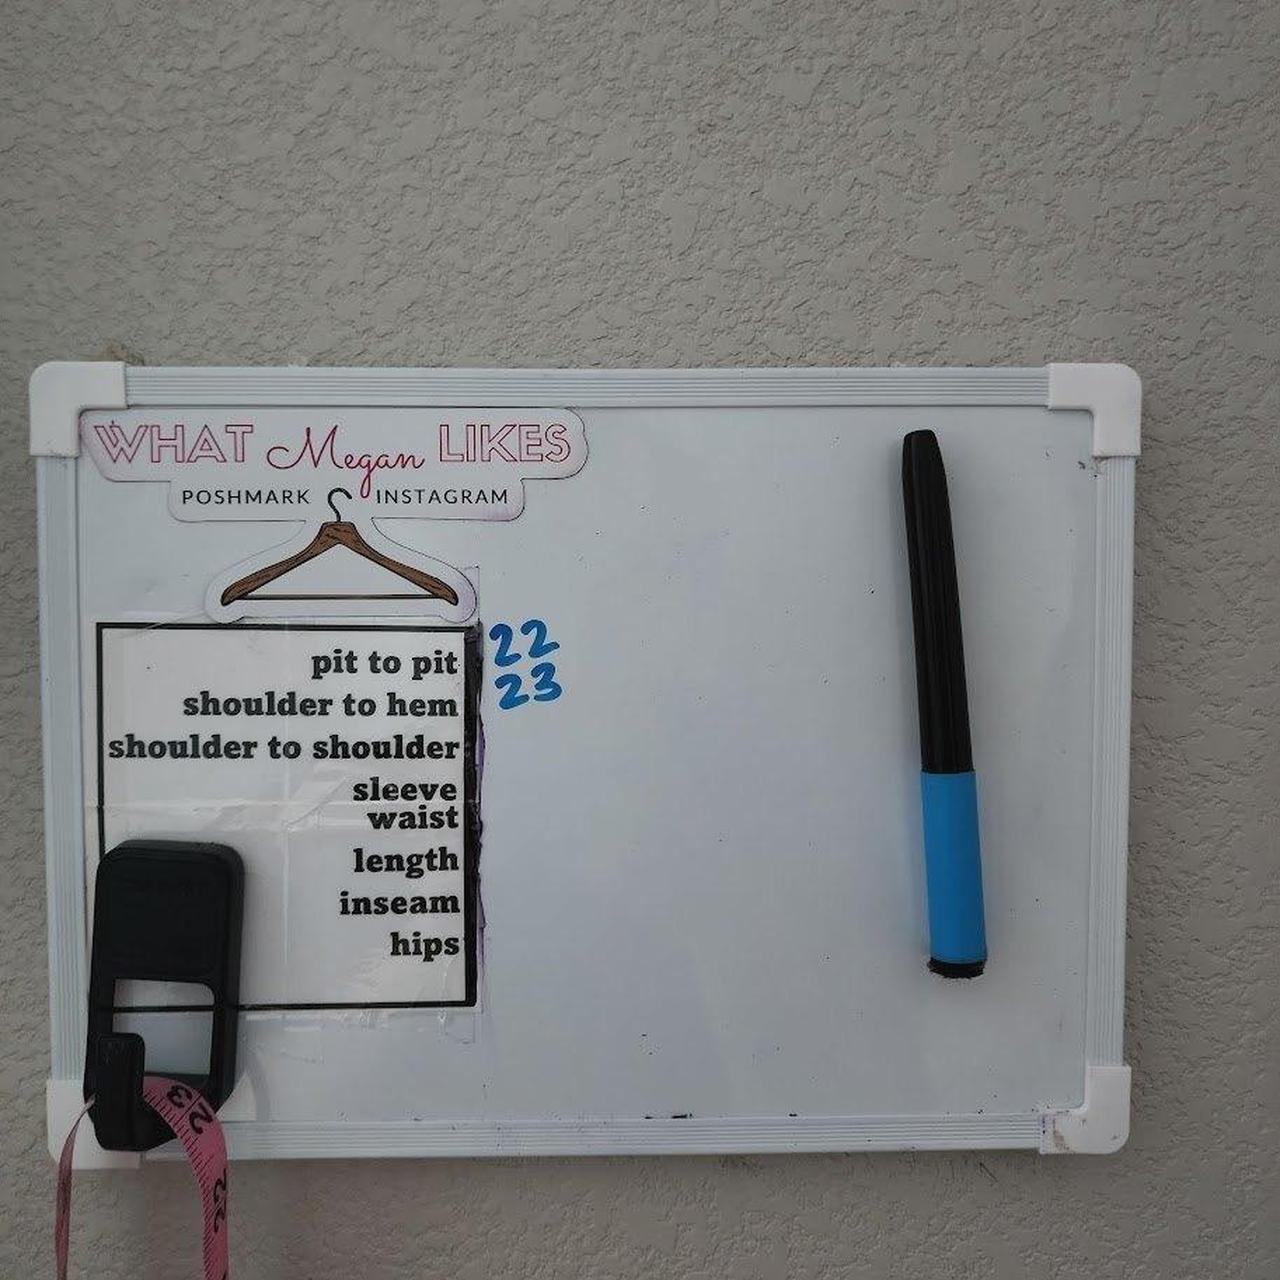 WHAT Megan LIKES
POSHMARK INSTAGRAM
pit to pit 22
shoulder to hem 23
shoulder to shoulder
sleeve
waist
length
inseam
hips
23
22